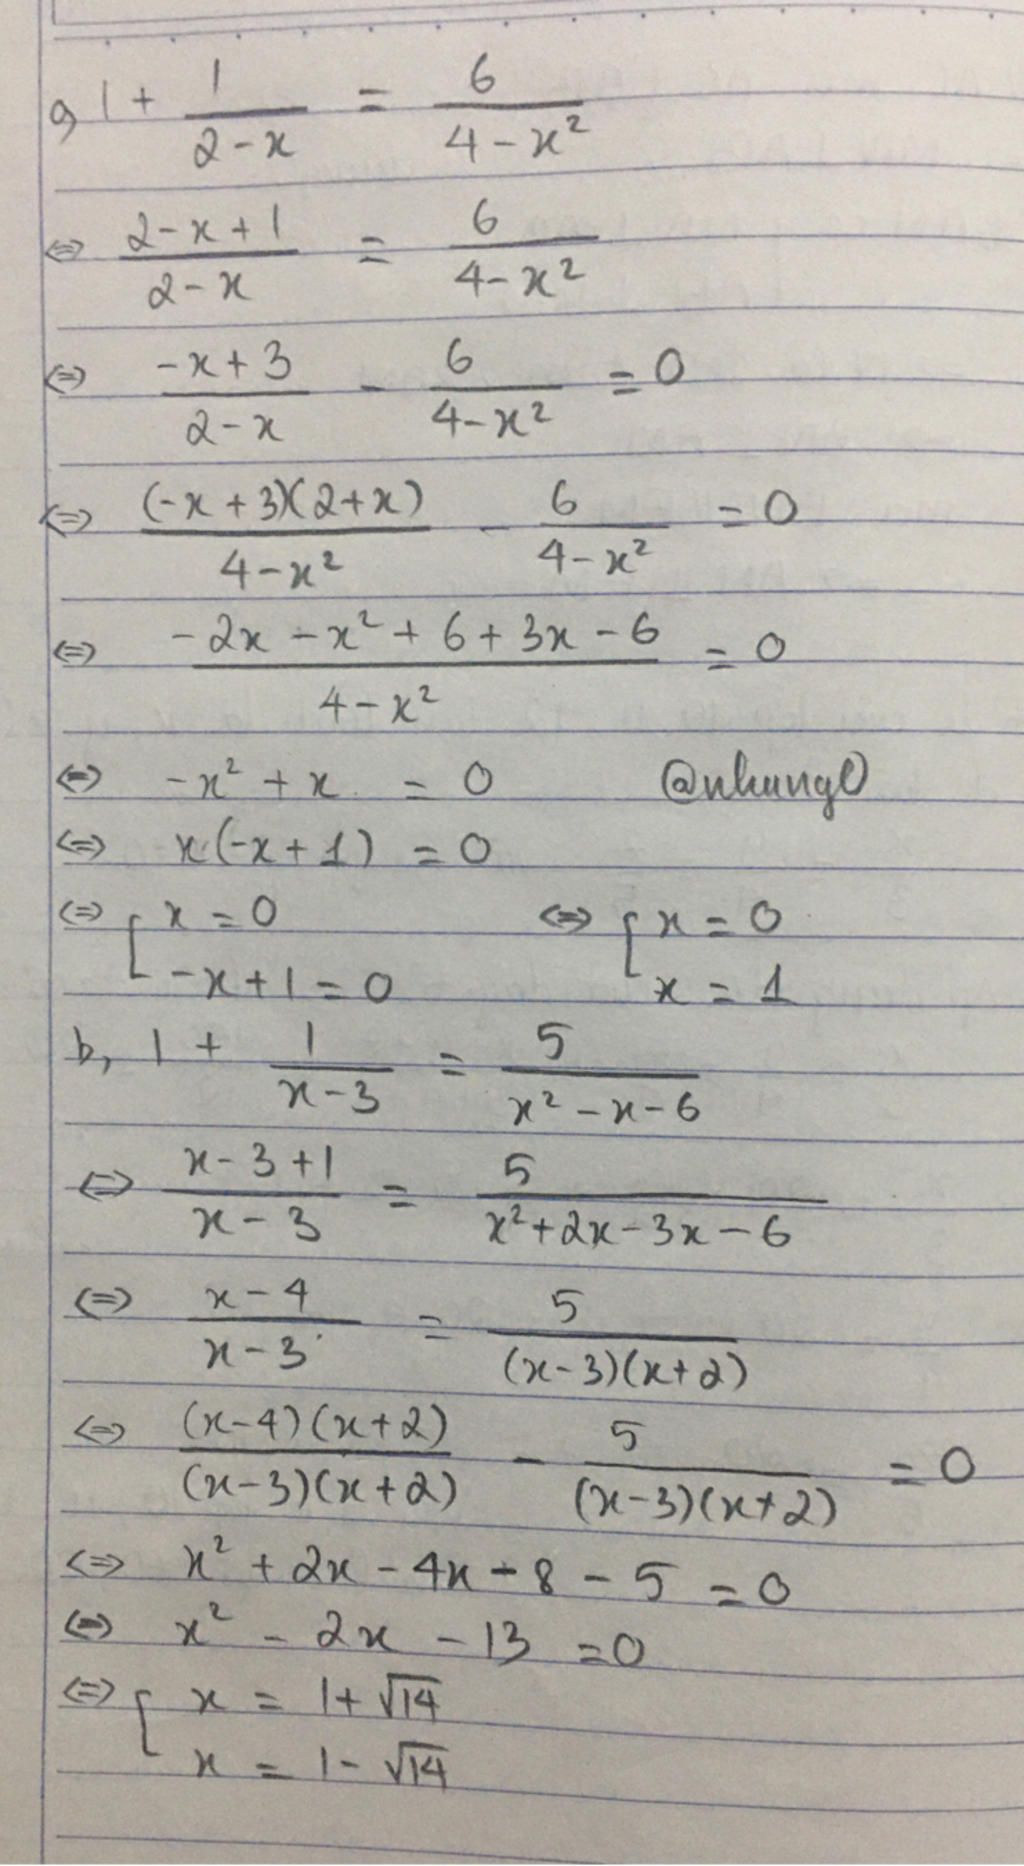 a, 1 + 1/(2-x) = 6/(4-x²)
⇔ (2-x+1)/(2-x) = 6/(4-x²)
⇔ (-x+3)/(2-x) - 6/(4-x²) = 0
⇔ (-x+3)(2+x)/(4-x²) - 6/(4-x²) = 0
⇔ (-2x-x²+6+3x-6)/(4-x²) = 0
⇔ -x² + x = 0 @nhung0
⇔ x(-x+1) = 0
⇔ [ x = 0 ⇔ [ x = 0
-x+1 = 0 x = 1
b, 1 + 1/(x-3) = 5/(x²-x-6)
⇔ (x-3+1)/(x-3) = 5/(x²+2x-3x-6)
⇔ (x-4)/(x-3) = 5/((x-3)(x+2))
⇔ (x-4)(x+2)/((x-3)(x+2)) - 5/((x-3)(x+2)) = 0
⇔ x² + 2x - 4x - 8 - 5 = 0
⇔ x² - 2x - 13 = 0
⇔ [ x = 1+√14
x = 1-√14